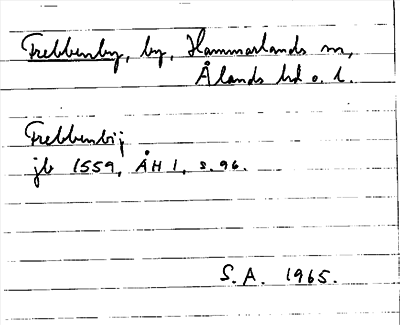 Frebbenby, by, Hammarlands sn,
Ålands hd o. l.
Frebbenbij
jb 1559, ÅH 1, s. 96.
S. A. 1965.